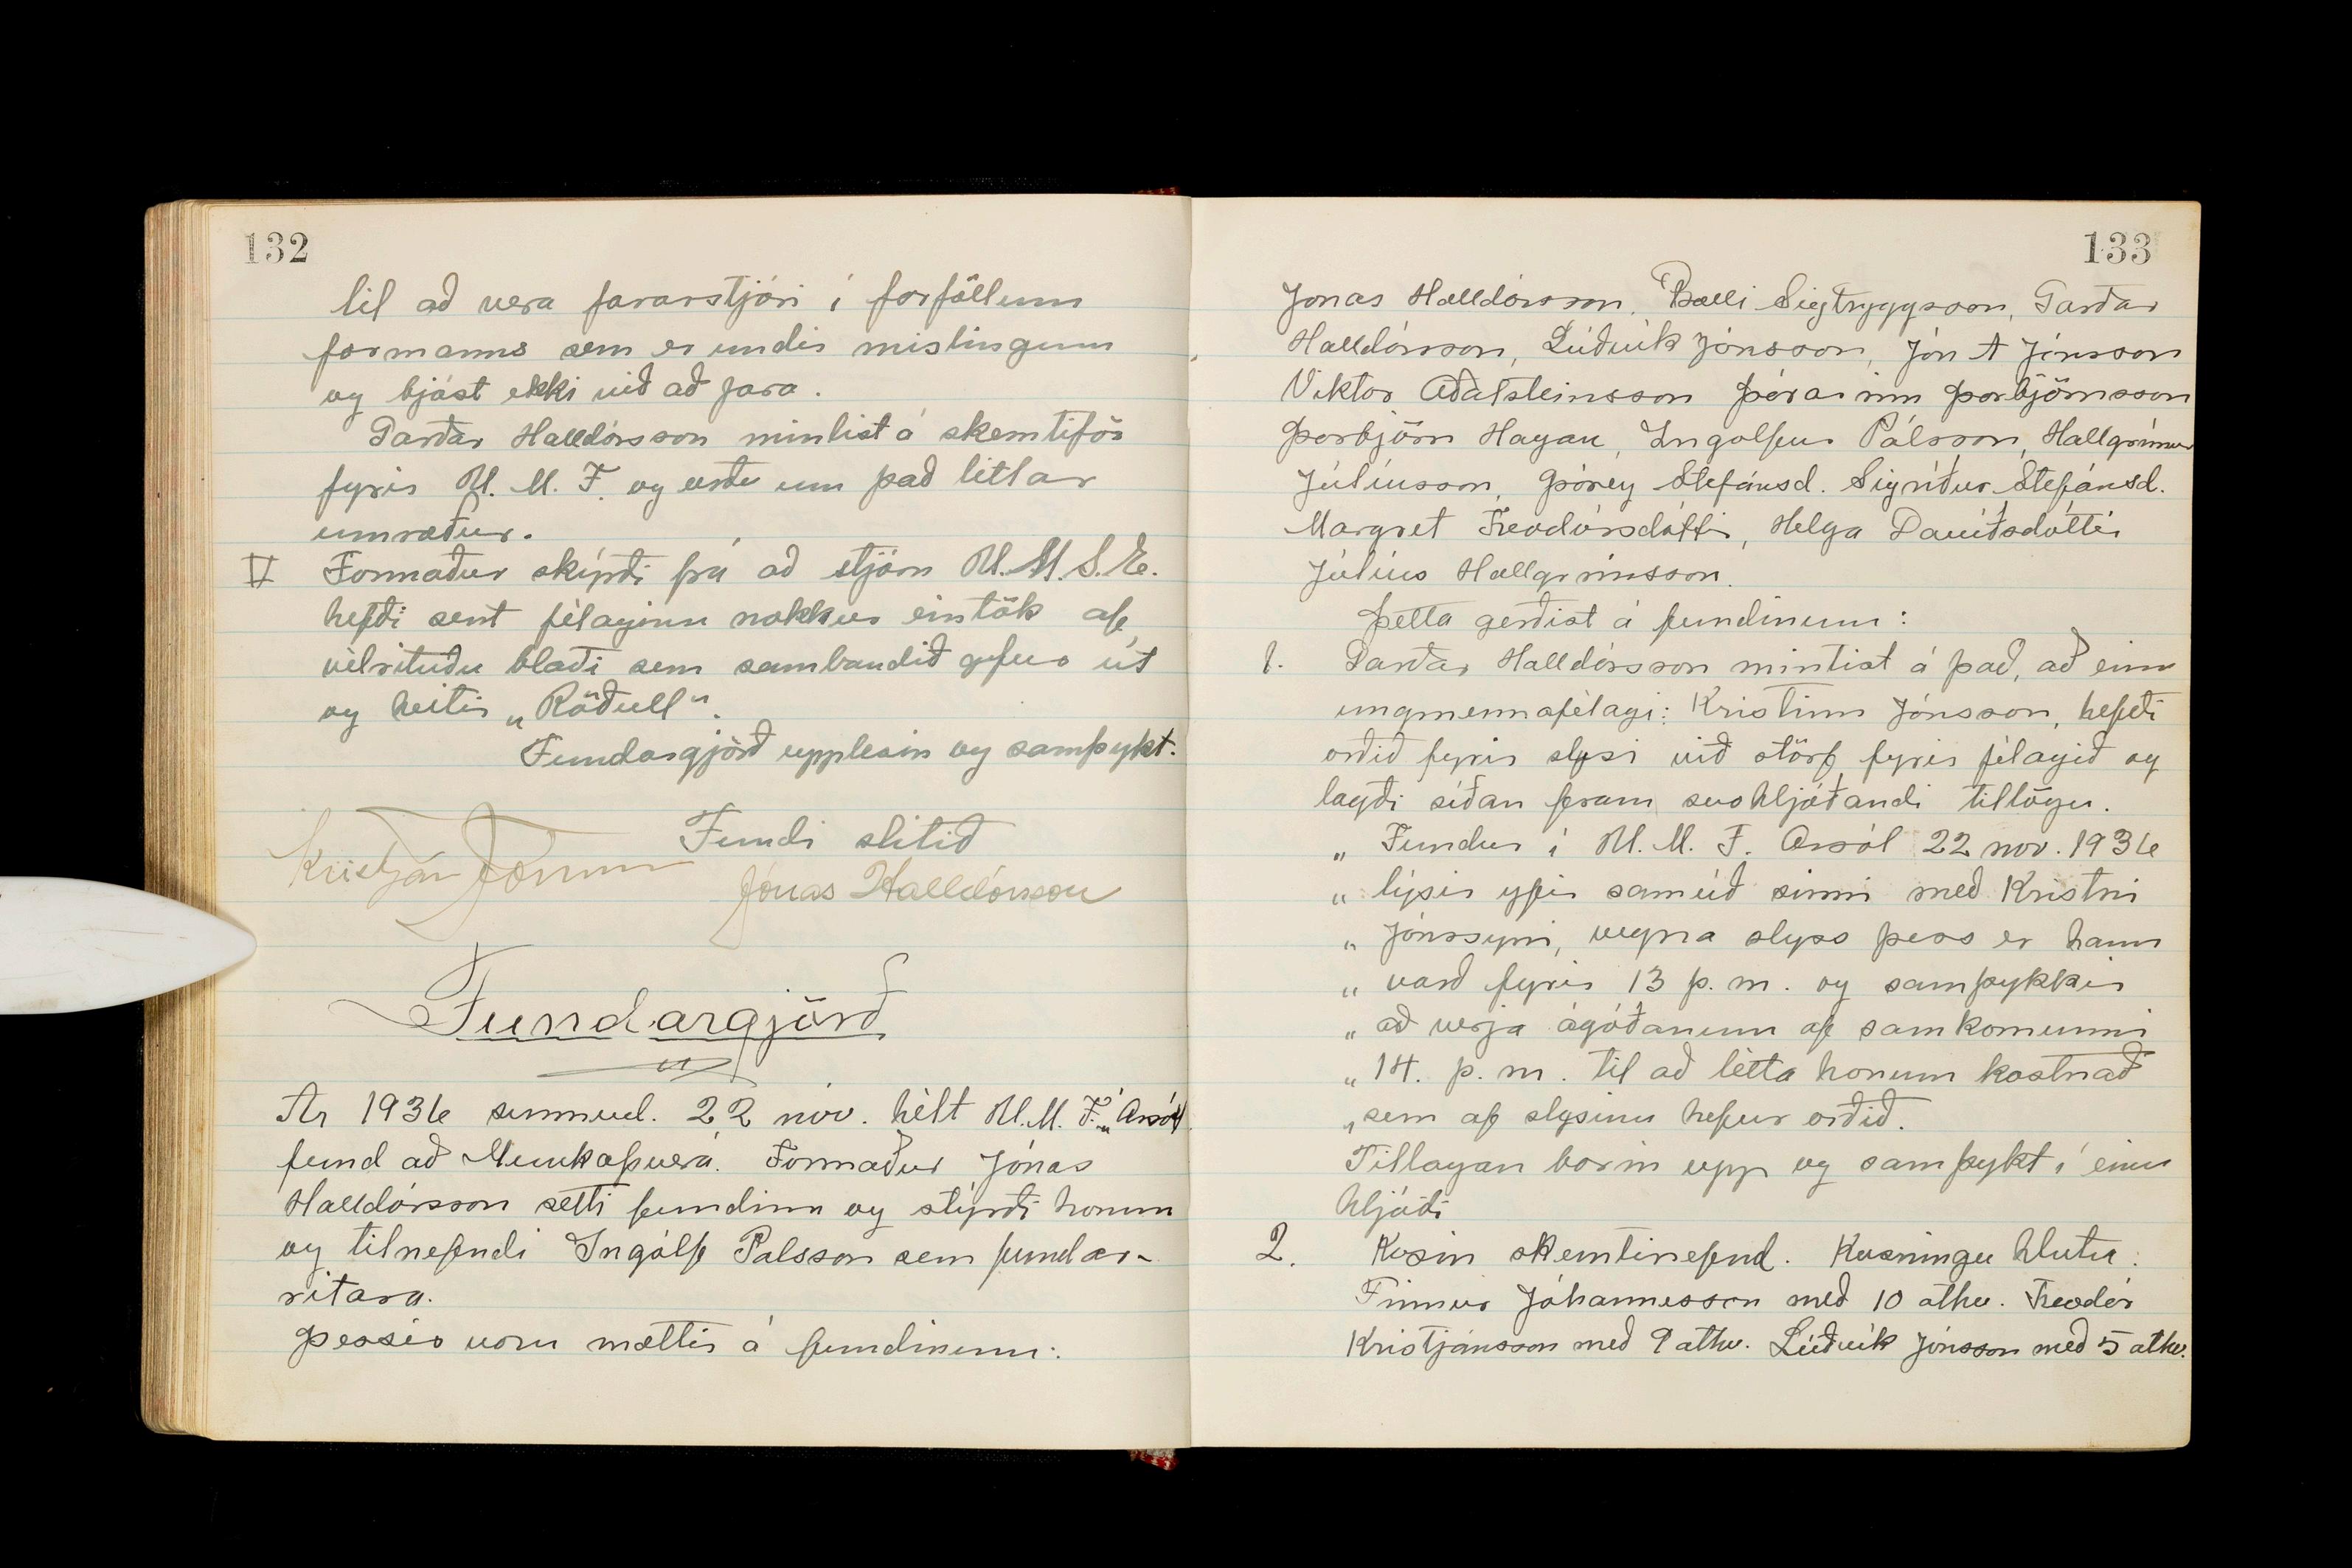 132
til að vera fararstjóri í forföllum
formanns sem er undir mislingum
og bjóst ekki við að fara.
Garðar Halldórsson mintist á skemtiför
fyrir U. M. F. og urðu um það litlar
umræður.
V Formaður skýrði frá að stjórn U.M.S.E.
hefði sent félaginu nokkur eintök af
vélrituðu blaði sem sambandið gefur út
og heitir „Röðull".
Fundargjörð upplesin og samþykt.
Fundi slitið
Kristján
Jónas Halldórsson
Fundargjörð
Ár 1936 sunnud. 22 nóv. hélt U.M.F. „Ársól
fund að Munkaþverá. Formaður Jónas
Halldórsson setti fundinn og stýrði honum
og tilnefndi Ingólf Pálsson sem fundar-
ritara.
Þessir voru mættir á fundinum:
133
Jónas Halldórsson, Bralli Sigtryggsson, Garðar
Halldórsson, Lúðvík Jónsson, Jón A Jónsson
Viktor Aðalsteinsson Þórarinn Þorbjörnsson
Þorbjörn Hagan, Ingólfur Pálsson, Hallgrímur
Júlíusson, Þórey Stefánsd. Sigríður Stefánsd.
Margret Treodórsdóttir, Helga Davíðsdóttir
Júlíus Hallgrímsson.
Þetta gerðist á fundinum:
1. Garðar Halldórsson mintist á það, að einn
ungmennafélagi: Kristinn Jónsson, hefði
orðið fyrir slysi við störf fyrir félagið og
lagði síðan fram svohljóðandi tillögu.
„ Fundur í U. M. F. Ársól 22 nov. 1936
„ lýsir yfir samúð sinni með Kristni
„ Jónssyni, vegna slyss þess er hann
„ varð fyrir 13 þ. m. og samþykkir
„ að verja ágóðanum af samkomunni
„ 14. þ. m. til að létta honum kostnað
„ sem af slysinu hefur orðið.
Tillagan borin upp og samþykt í einu
hljóði
2. Kosin skemtinefnd. Kosningu hlutu:
Finnur Jóhannesson með 10 atkv. Treodór
Kristjánsson með 9 atkv. Lúðvík Jónsson með 5 atkv.